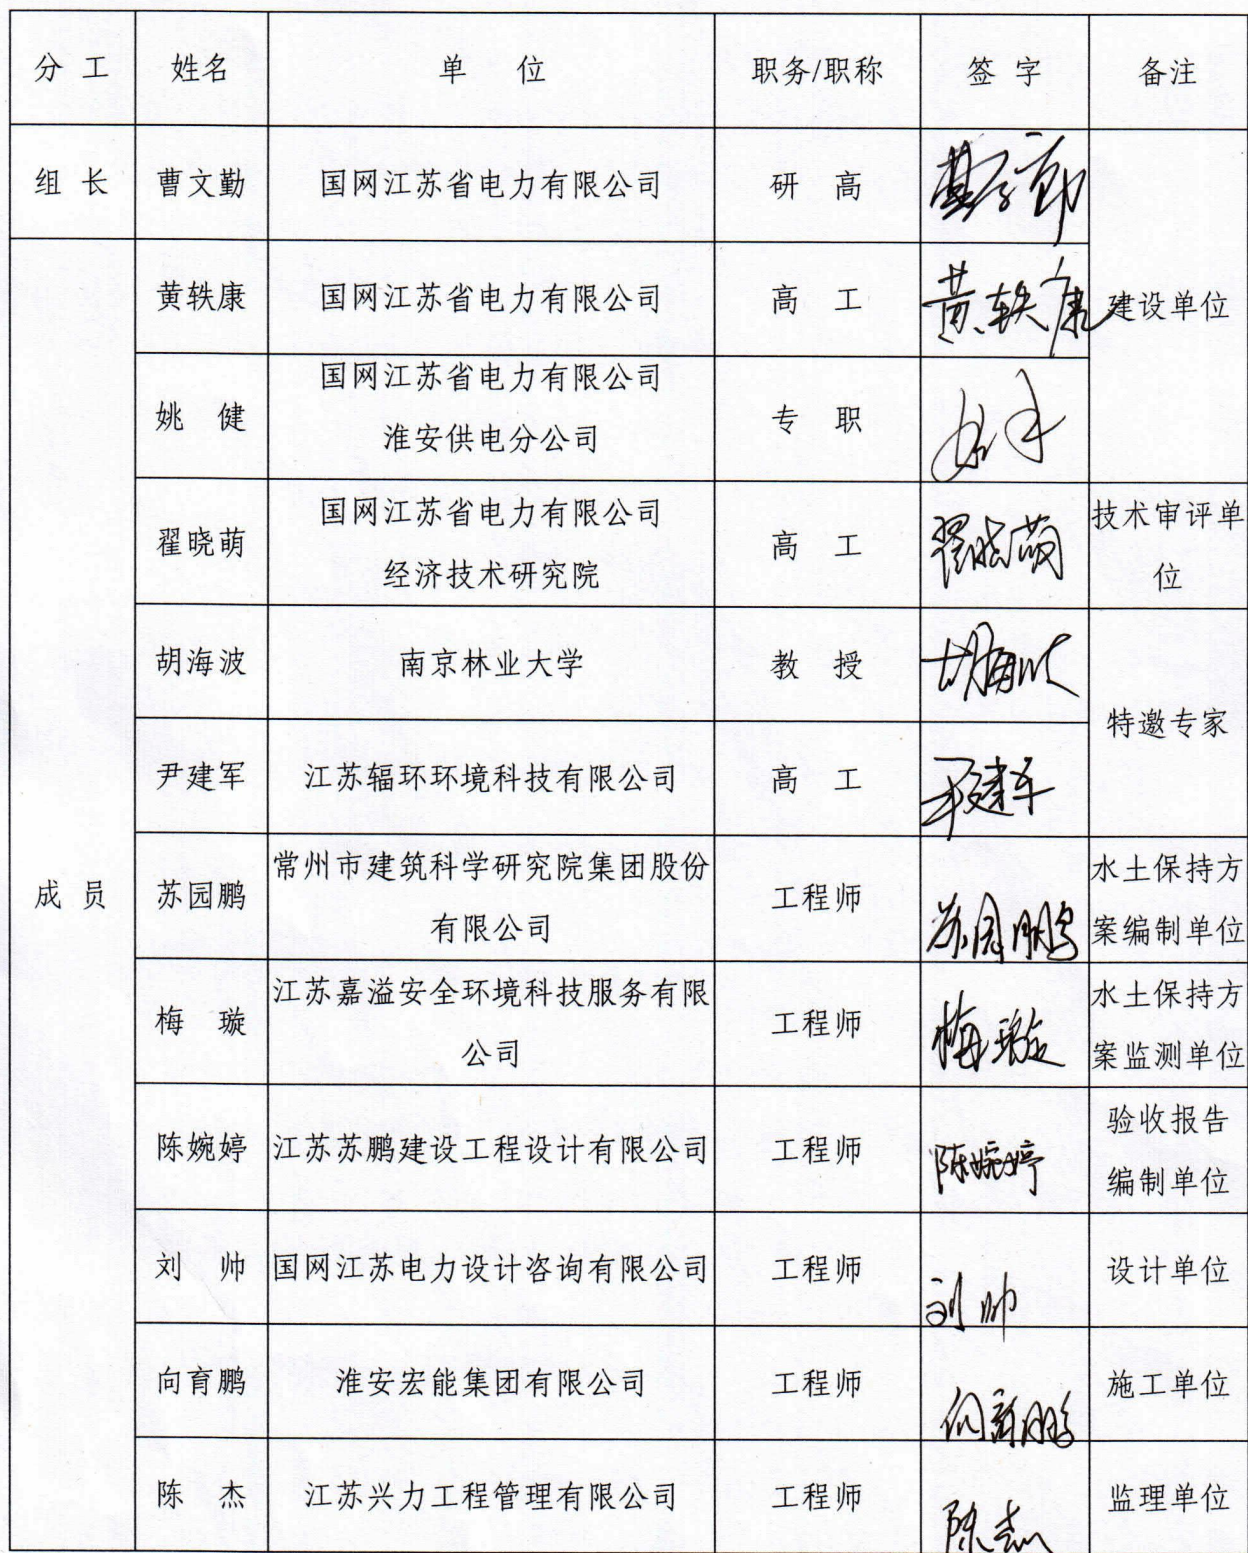 分 工 姓名 单 位 职务/职称 签 字 备注
组 长 曹文勤 国网江苏省电力有限公司 研 高
黄轶康 国网江苏省电力有限公司 高 工 黄轶康 建设单位
姚 健 国网江苏省电力有限公司
淮安供电分公司 专 职
翟晓萌 国网江苏省电力有限公司
经济技术研究院 高 工 翟晓萌 技术审评单
位
胡海波 南京林业大学 教 授 胡海波
特邀专家
尹建军 江苏辐环环境科技有限公司 高 工 尹建军
成 员 苏园鹏 常州市建筑科学研究院集团股份
有限公司 工程师 苏园鹏 水土保持方
案编制单位
梅 璇 江苏嘉溢安全环境科技服务有限
公司 工程师 梅璇 水土保持方
案监测单位
陈婉婷 江苏苏鹏建设工程设计有限公司 工程师 陈婉婷 验收报告
编制单位
刘 帅 国网江苏电力设计咨询有限公司 工程师 刘帅 设计单位
向育鹏 淮安宏能集团有限公司 工程师 施工单位
陈 杰 江苏兴力工程管理有限公司 工程师 陈杰 监理单位